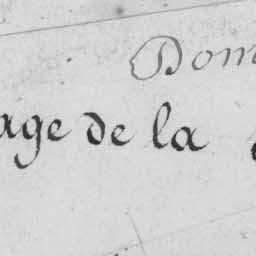 Dom
age de la